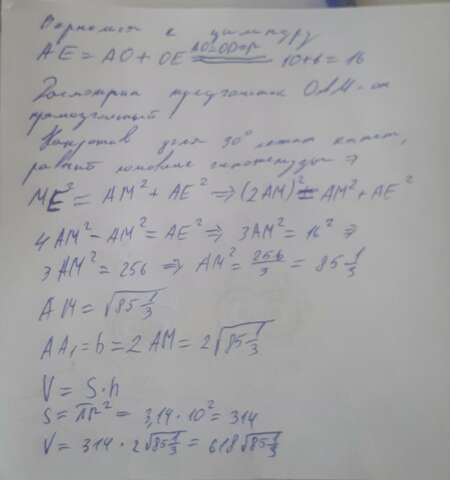 Вернемся к цилиндру
AE = AO + OE AO=OD=r 10+6 = 16
Рассмотрим треугольник OAM - он
прямоугольный
Напротив угла 30° лежит катет,
равный половине гипотенузы ⇒
ME² = AM² + AE² ⇒ (2AM)² = AM² + AE²
4AM² - AM² = AE² ⇒ 3AM² = 16² ⇒
3AM² = 256 ⇒ AM² = 256/3 = 85 1/3
AM = √85 1/3
AA₁ = h = 2AM = 2√85 1/3
V = S·h
S = πR² = 3,14·10² = 314
V = 314 · 2√85 1/3 = 618√85 1/3